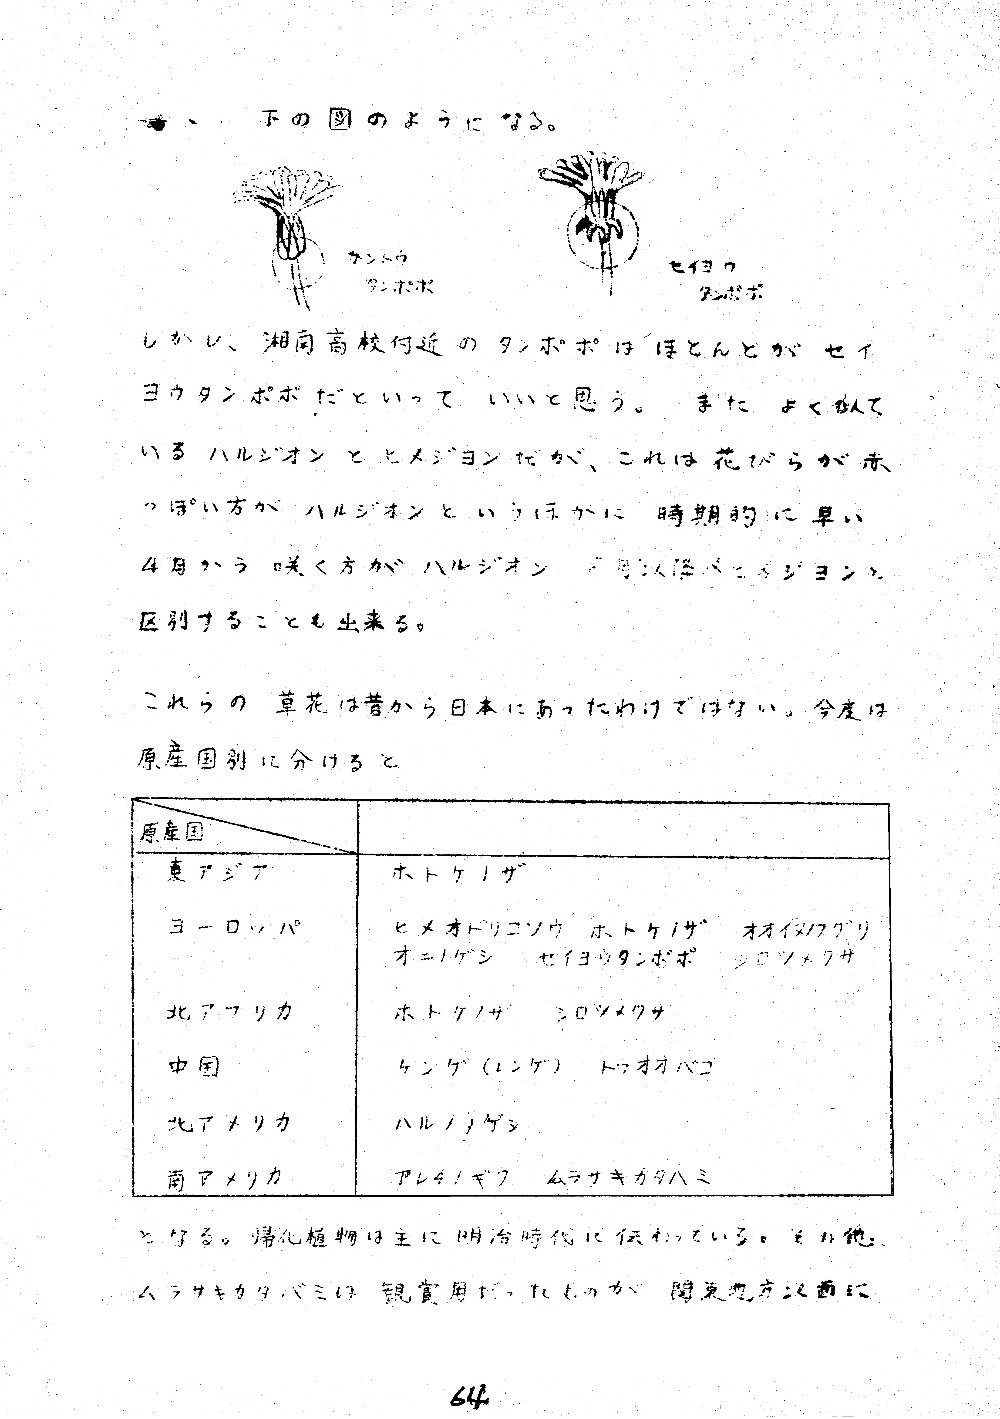 下の図のようになる。
カントウ
タンポポ
セイヨウ
タンポポ
しかし、湘南高校付近のタンポポはほとんどが セイ
ヨウタンポポだといって いいと思う。 また よく似て
いるハルジオンとヒメジョンだが、これは花びらが赤
っぽい方が ハルジオンというほかに 時期的に早い
4月から 咲く方が ハルジオン 月以降がヒメジョンと
区別することも出来る。
これらの 草花は昔から日本にあったわけではない。今度は
原産国別に分けると
原産国
東アジア ホトケノザ
ヨーロッパ ヒメオドリコソウ ホトケノザ オオイヌノフグリ
オニノゲシ セイヨウタンポポ シロツメクサ
北アフリカ ホトケノザ シロツメクサ
中国 ゲンゲ(レンゲ) トウオオバコ
北アメリカ ハルノノゲシ
南アメリカ アレチノギク ムラサキカタバミ
となる。帰化植物は主に 明治時代に伝わっている。その他、
ムラサキカタバミは 観賞用だったものが 関東地方以西に
64